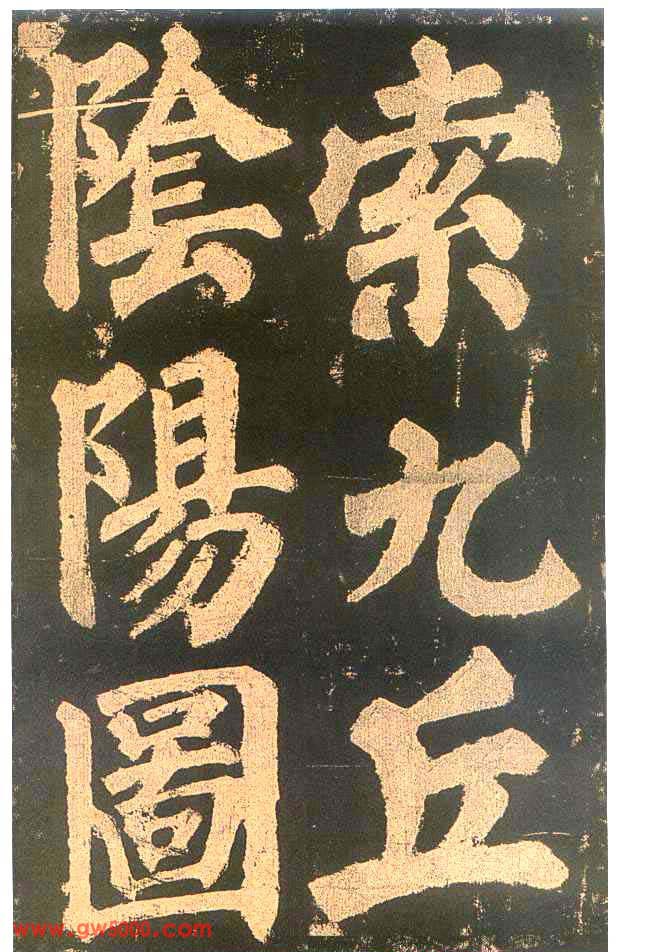 索九丘
陰陽圖
www.gw8000.com